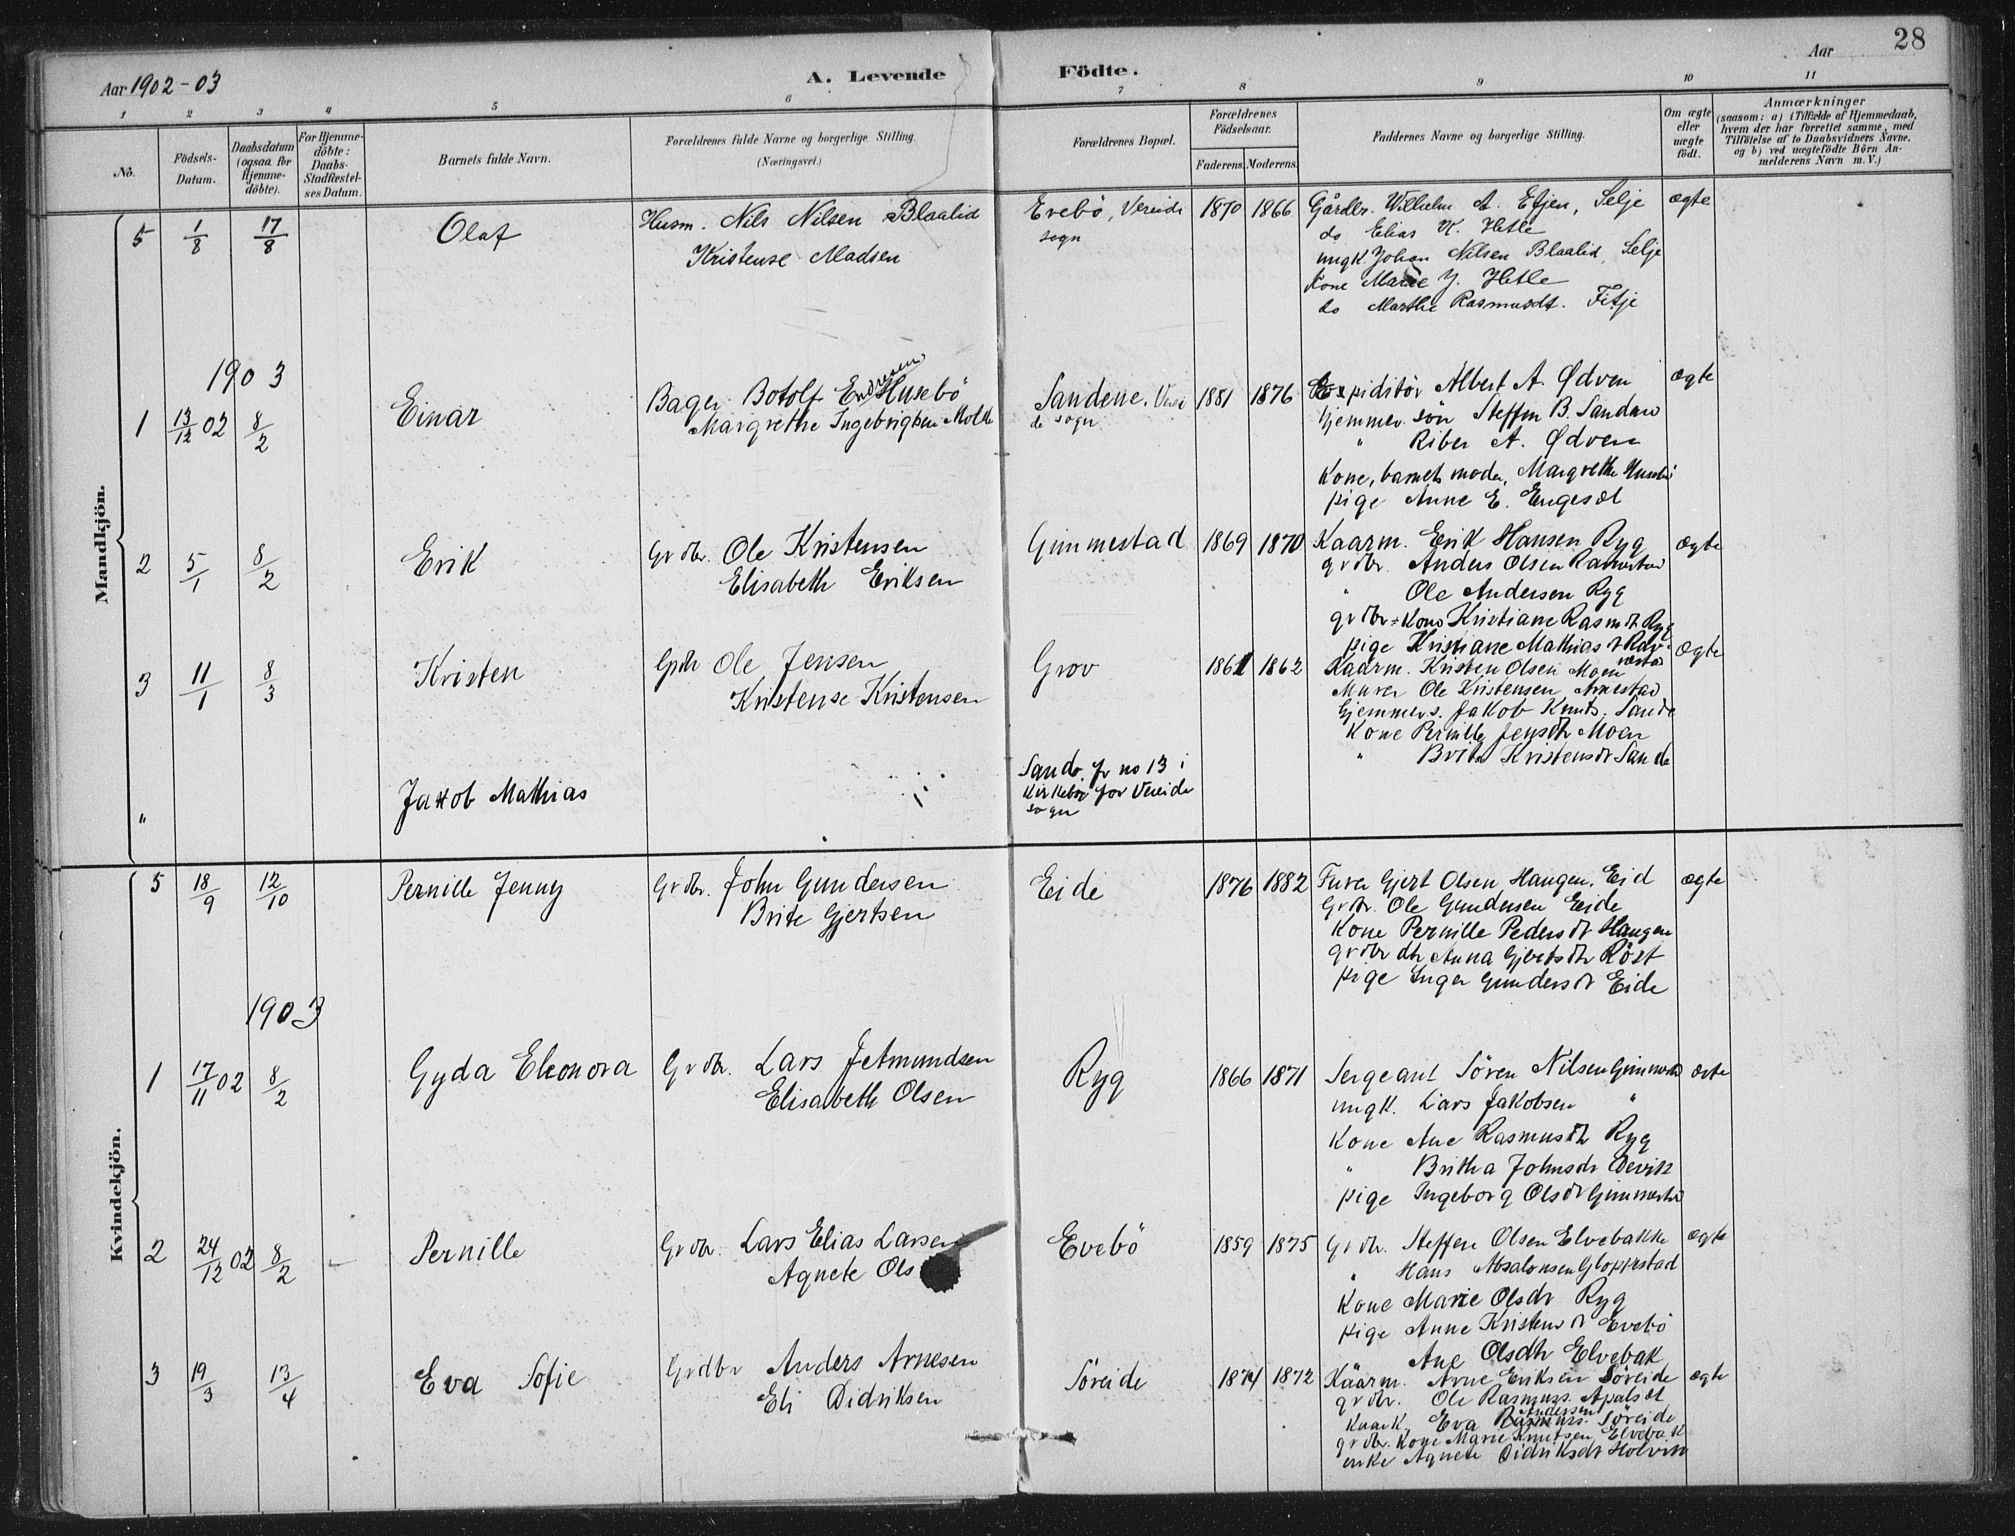 28
Aar 1902-03
A. Levende Födte.
Aar
1 2 3 4 5 6 7 8 9 10 11
No.
Födsels-Datum.
Daabsdatum (ogsaa for Hjemme-döbte).
For Hjemme-döbte: Daabs-Stadfæstel-ses Datum.
Barnets fulde Navn.
Forældrenes fulde Navne og borgerlige Stilling.
(Næringsvei.)
Forældrenes Bopæl.
Forældrenes Födselsaar.
Faderens. Moderens.
Faddernes Navne og borgerlige Stilling.
Om ægte eller uægte födt.
Anmærkninger
(saasom: a) i Tilfælde af Hjemmedaab, hvem der har forrettet samme, med Tilföielse af to Daabsvidners Navne. og b) ved uægtefödte Börn An-melderens Navn m. V.)
Mandkjön.
5 1/8 17/8 Olaf Husm. Nils Nilsen Blaalid Evebö, Vereide 1870 1866 Gårdbr. Wilhelm A. Efjen, Selje ægte
sogn do Elias K. Hetle
Kristense Madsen ungk. Johan Nilsen Blaalid, Selje
Kone Marie J. Hetle
do Marthe Rasmusdt. Fitje
1903
1 13/12 02 8/2 Einar Bager Botolf Endresen Husebö Sandene, Verei 1881 1876 Expiditör Albert A. Ødven ægte
Margrethe Ingebrigtsen Molde de sogn Hjemmev. sön Steffen B. Sandan
" Riber A. Ødven
Kone, barnets moder, Margrethe Husebö
pige Anne E. Engeset
2 5/1 8/2 Erik Grdbr. Ole Kristensen Gimmestad 1869 1870 Kaarm. Erik Hansen Ryg ægte
Elisabeth Eriksen grdbr. Anders Olsen Ravnestad
" Ole Andersen Ryg
grdbr. Kone Kristiane Rasmdt Ryg
pige Kristiane Mathiasdt Rav-nestad
3 11/1 8/3 Kristen Grdbr Ole Jensen Grov 1861 1862 Kaarm. Kristen Olsen Moen ægte
Kristense Kristensen Murer Ole Kristensen, Arnestad
Gjemmevs. Jakob Knuts. Sande
Kone Pernille Jensdtr Moen
" Brite Kristensdt Sande
" Jakob Mathias Sande. fr no 13 i
Kirkebog for Vereide
sogn
Kvindekjön.
5 18/9 12/10 Pernille Jenny Grdbr. John Gundersen Eide 1876 1882 Furer Gjert Olsen Haugen, Eid ægte
Brite Gjertsen Grdbr. Ole Gundersen Eide
Kone Pernille Pedersdt Haugen
grdbr dtr Anna Gjertsdtr Röst
pige Inger Gundersdt Eide
1903
1 17/11 02 8/2 Gyda Eleonora Grdbr. Lars Jetmundsen Ryg 1866 1871 Sergeant Sören Nilsen Gimmestad ægte
Elisabeth Olsen ungk. Lars Jakobsen "
Kone Ane Rasmusdtr Ryg
" Britha Johnsdr Devik
pige Ingeborg Olsdt Gimmestad
2 24/12 02 8/2 – Pernille Grdbr. Lars Elias Larsen Evebö 1859 1875 Grdbr. Steffen Olsen Elvebakke ægte
Agnete Ols " Hans Absalonsen Gloppestad
Kone Marie Olsdr Ryg
pige Anne Kristensdt Evebö
Ane Olsdtr Elvebak
3 19/3 13/4 Eva Sofie Grdbr Anders Arnesen Söreide 1874 1872 Kåarm. Arne Eriksen Söreide ægte
Eli Didriksen grdbr. Ole Rasmuss. Apalset
Kaark. Eva Andersen Söreide
grdbr. Kone Marie Knutsen, Elvebak
enke Agnete Didriksdt Holvik